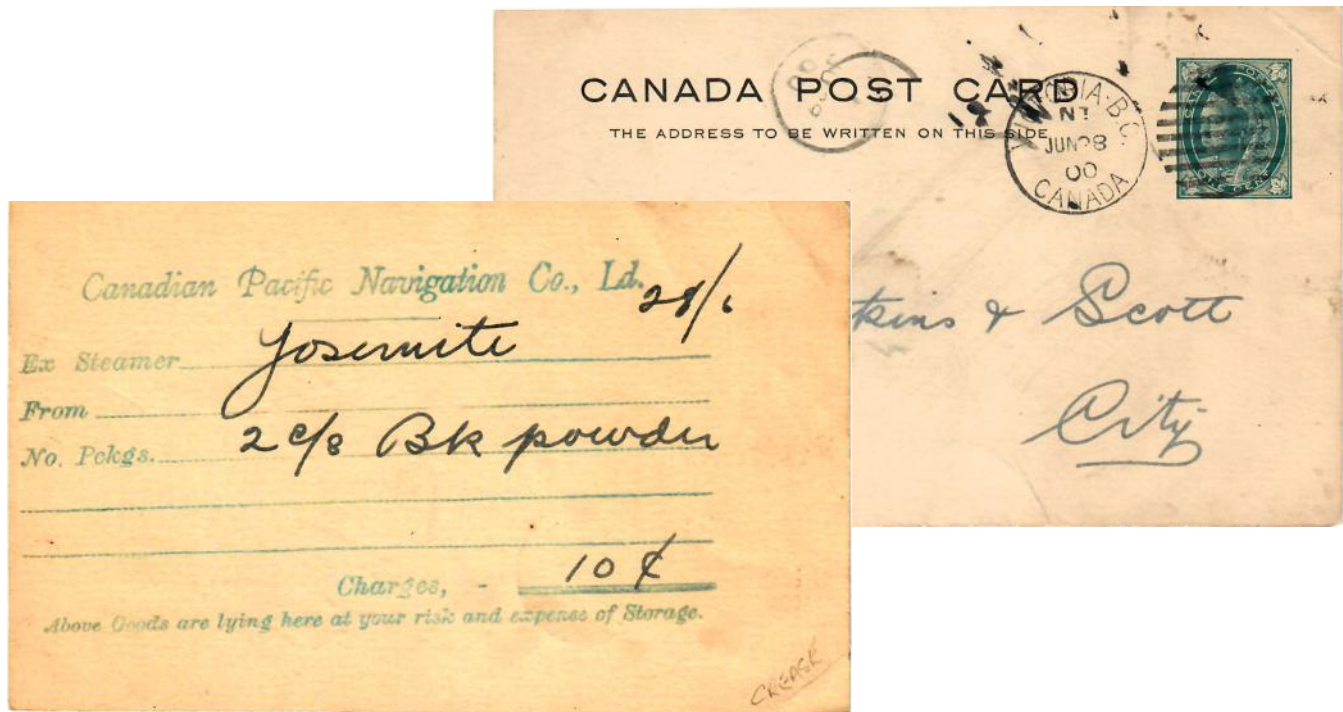 CANADA POST CARD
THE ADDRESS TO BE WRITTEN ON THIS SIDE
VICTORIA · B.C.
NT
JUN 28
00
CANADA
ONE CENT
kins & Scott
City
Canadian Pacific Navigation Co., Ld.
28/6
Ex Steamer Yosemite
From
No. Pckgs. 2 c/s Bk powder
Charges, - 10 ¢
Above Goods are lying here at your risk and expense of Storage.
CREASE